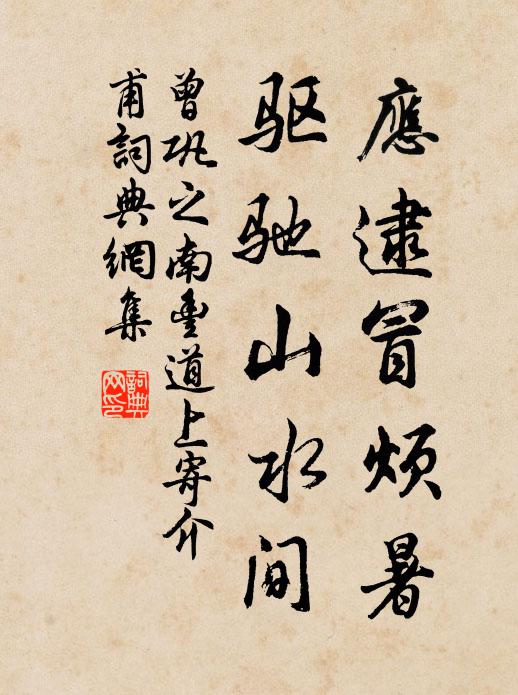 應逮冒烦暑
驱驰山水间
曾巩之南豊道上寄介
甫詞典網集
詞典网印